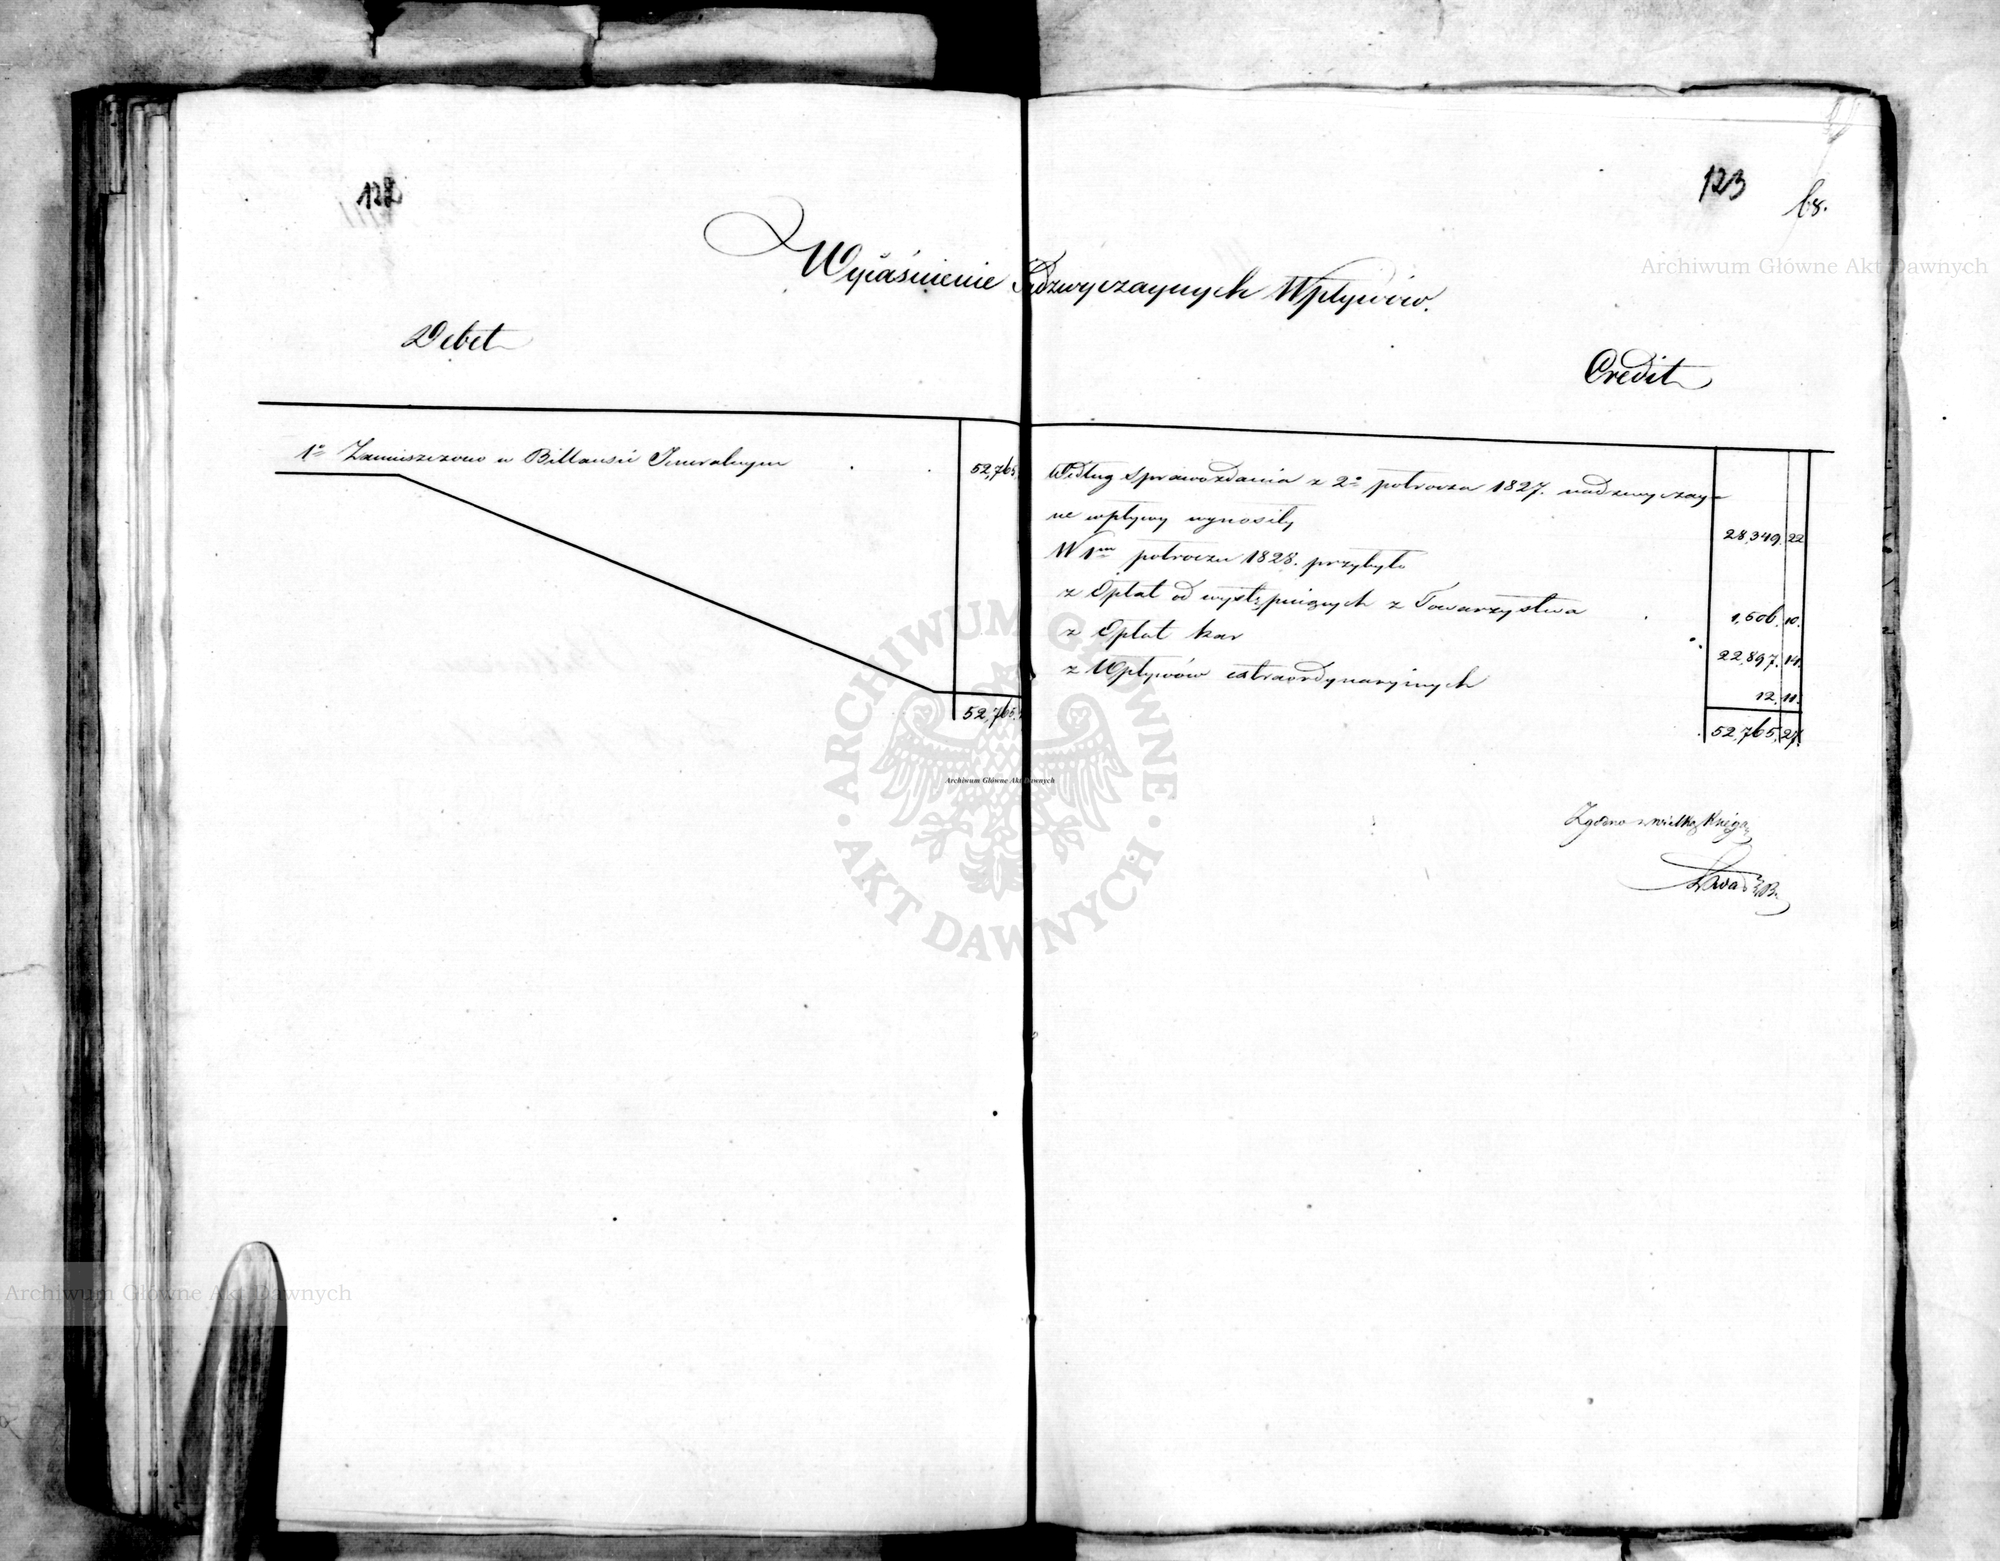 122
123
68.
Wyjaśnienie Nadzwyczaynych Wpływów.
Debet
Credit
1º Zamieszczono w Billansie Generalnym . . 52,765
52,765.
Według Sprawozdania z 2º półrocza 1827. nadzwyczay-
ne wpływy wynosiły 28,349. 22
W 1m półroczu 1828. przybyło
z Opłat od występuiących z Towarzystwa . 1,506. 10.
z Opłat kar . 22,897. 14.
z Wpływów extraordynaryinych 12. 11.
52,765. 27.
Zgodno z wielką Księgą
Archiwum Główne Akt Dawnych
Archiwum Główne Akt Dawnych
Archiwum Główne Akt Dawnych
ARCHIWUM GŁÓWNE
AKT DAWNYCH